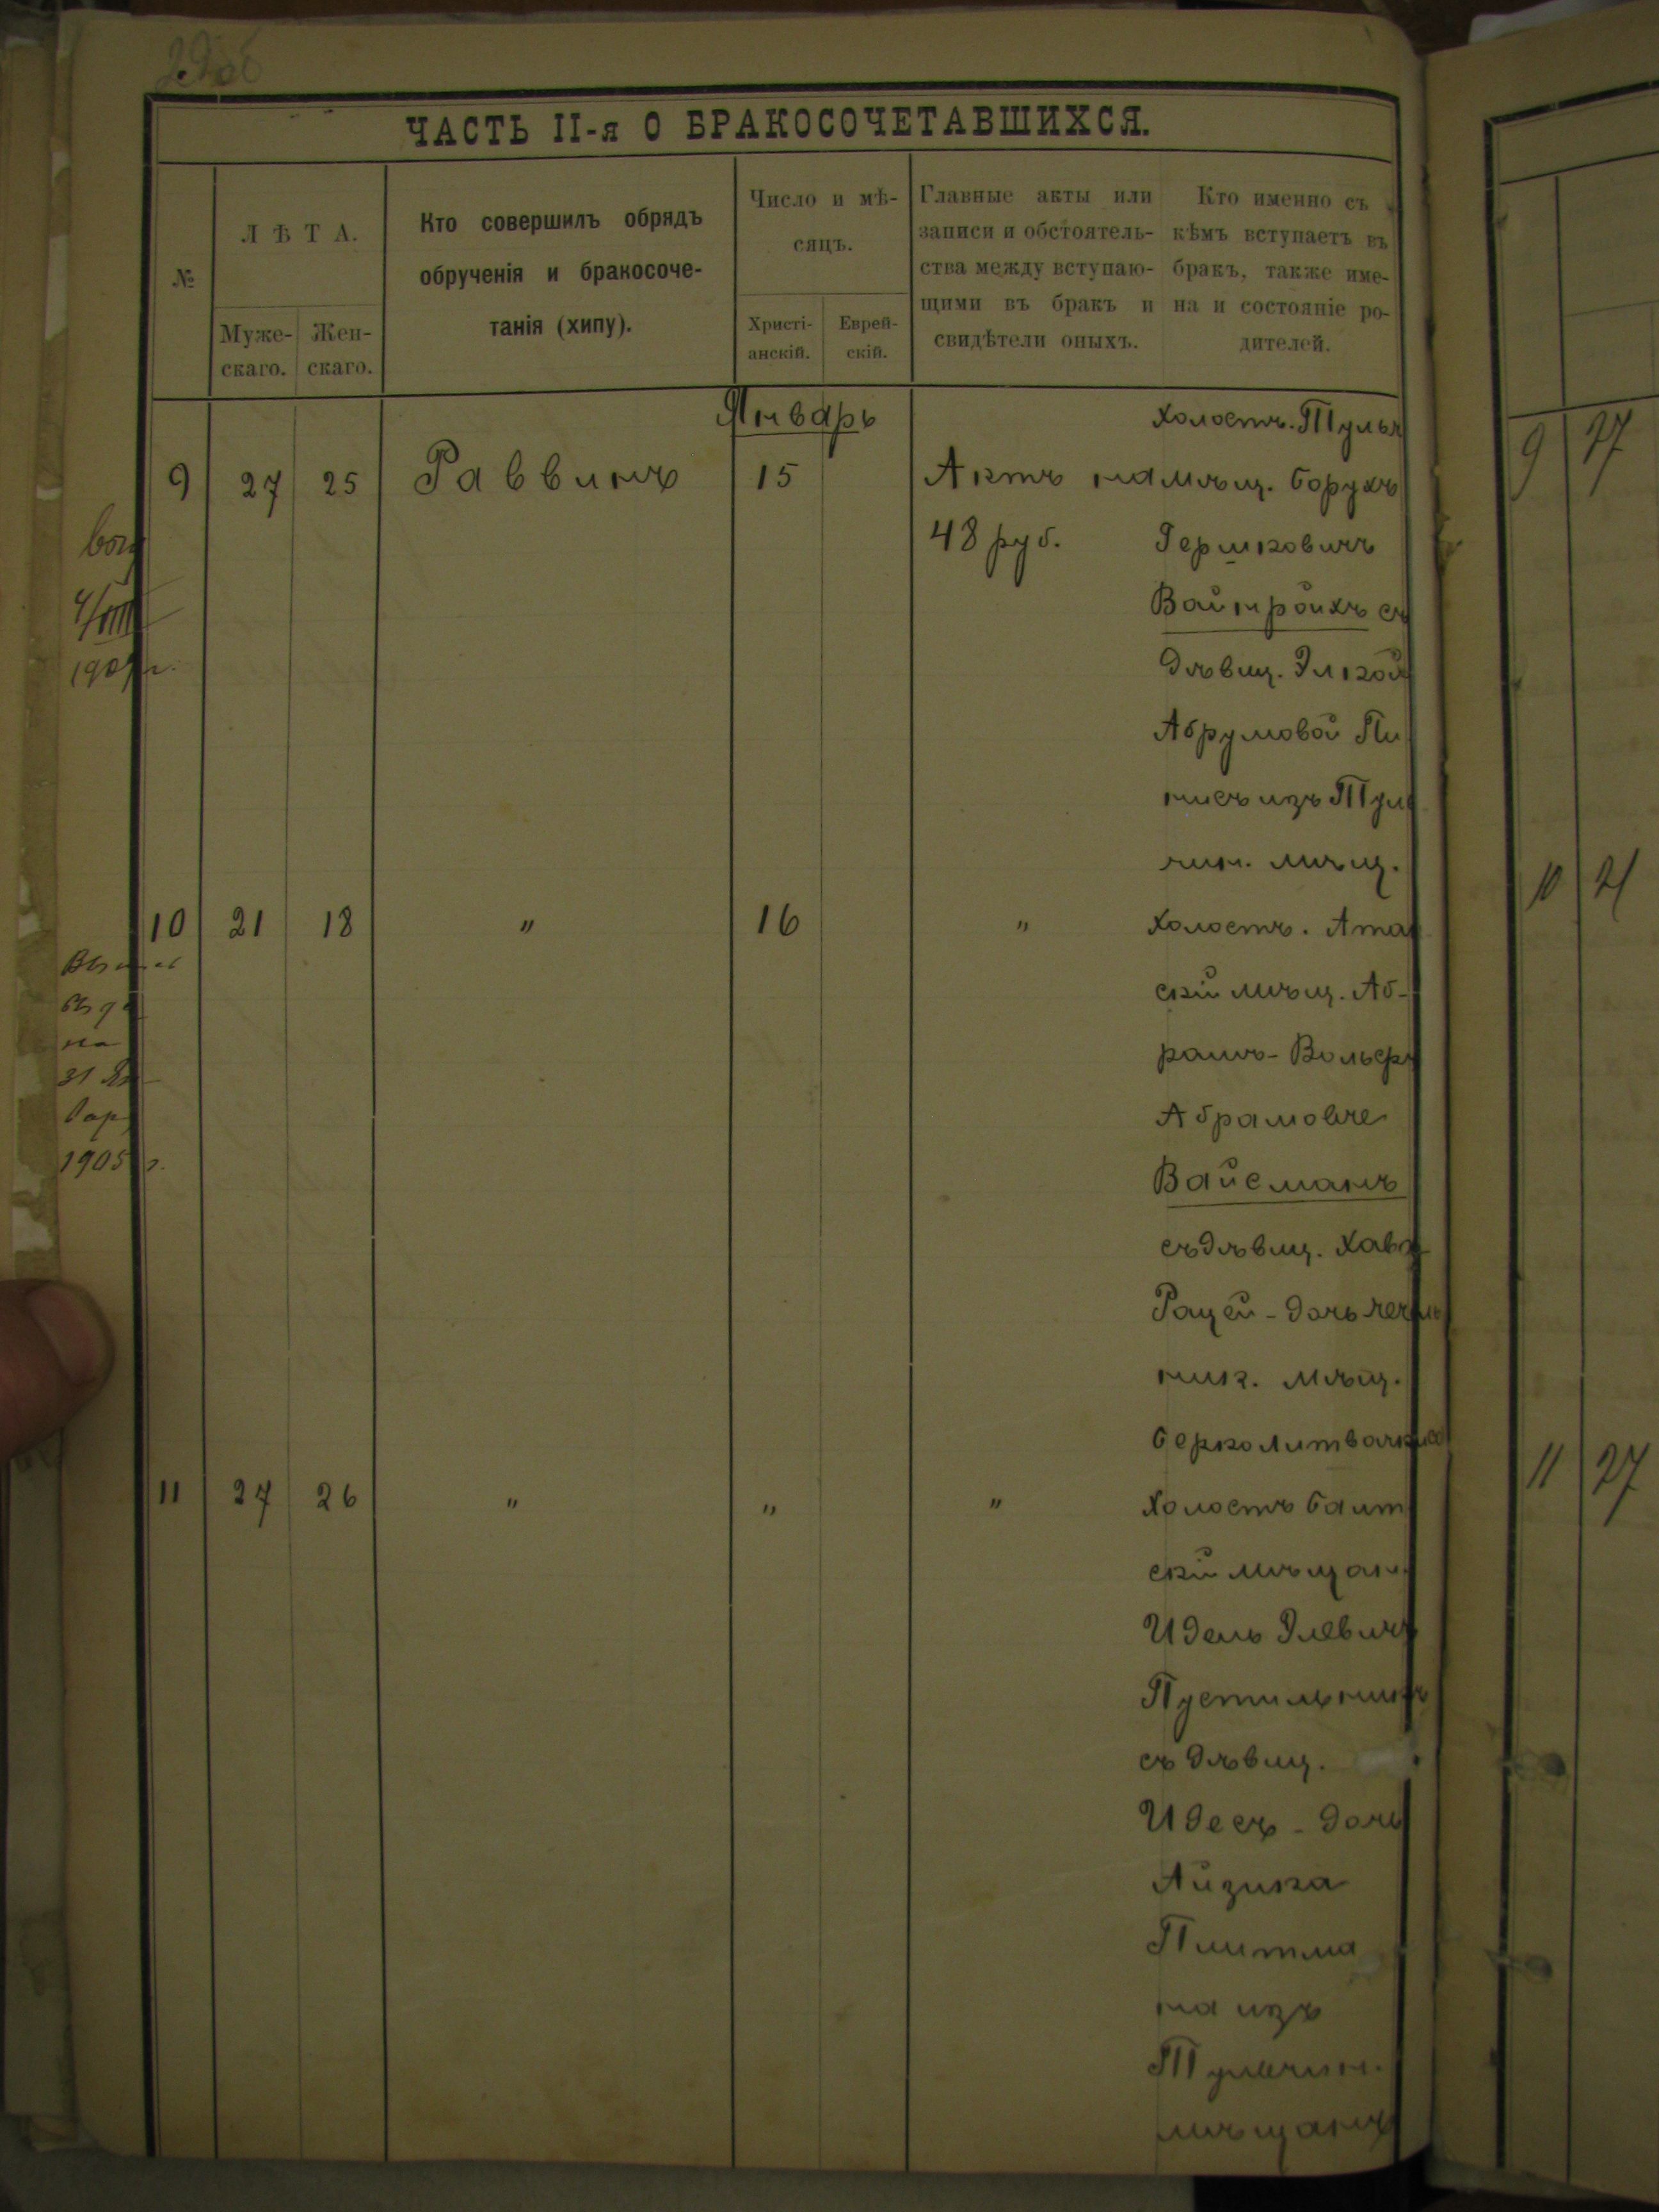 ЧАСТЬ II-я О БРАКОСОЧЕТАВШИХСЯ.
№
ЛѢТА.
Муже-
скаго.
Жен-
скаго.
Кто совершилъ обрядъ
обрученія и бракосоче-
танія (хипу).
Число и мѣ-
сяцъ.
Христі-
анскій.
Еврей-
скій.
Главные акты или
записи и обстоятель-
ства между вступаю-
щими въ бракъ и
свидѣтели оныхъ.
Кто именно съ
кѣмъ вступаетъ въ
бракъ, также име-
на и состояніе ро-
дителей.
Январь
9 27 25 Раввинъ 15 Актъ на
48 руб.
Холостъ. Тульч
мѣщ. Борухъ
Гершковичъ
Вайнтройхъ съ
дѣвиц. Элькой
Абрумовой Пи
нисъ изъ Туль
чин. мѣщ.
1907 г.
10 21 18 " 16 "
Холостъ. Атак
скій мѣщ. Аб-
рамъ-Вольфъ
Абрамовъ
Вайсманъ
съ дѣвиц. Хавой
Рацей - дочь
ник. мѣщ.
Берко Литвака
на
31 Ян
вар
1905 г.
11 27 26 " " "
Холостъ Балт
скій мѣщан.
Идель Элевичъ
Пустильникъ
съ дѣвиц.
Идесъ - дочь
Айзика
на изъ
Тульчин.
мѣщанъ
9 27
10 21
11 27